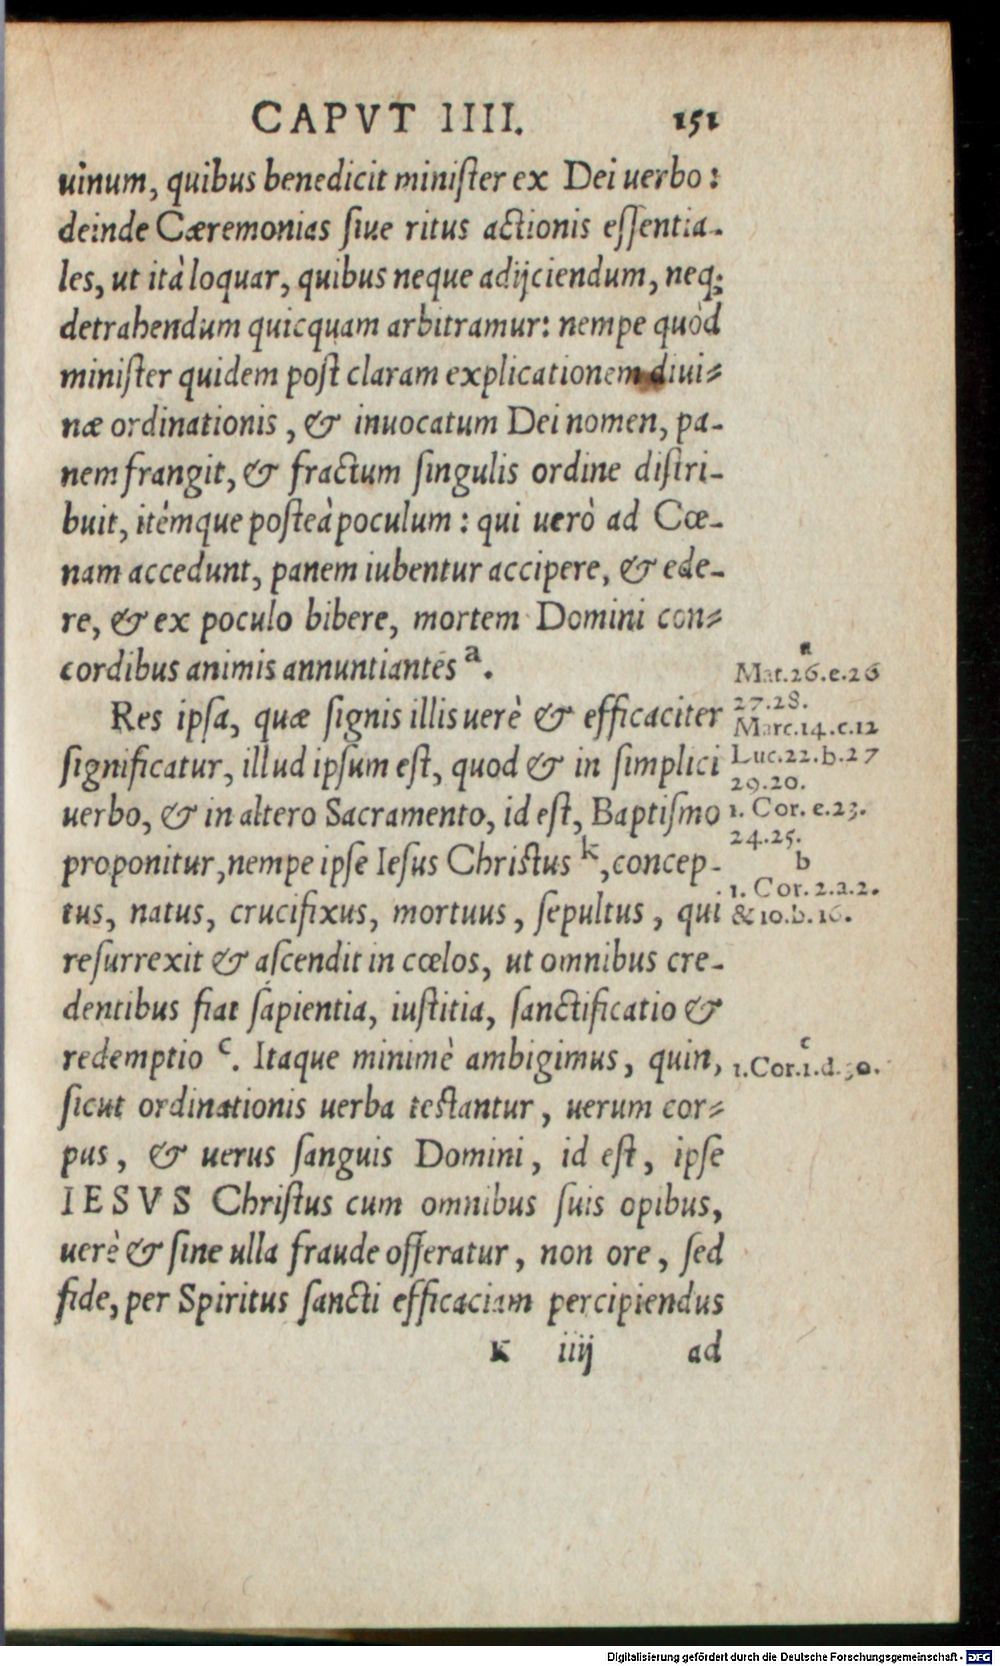 CAPVT IIII. 151
uinum, quibus benedicit miniſter ex Dei uerbo:
deinde Cæremonias ſiue ritus actionis eſſentia-
les, ut ità loquar, quibus neque adijciendum, neq;
detrahendum quicquam arbitramur: nempe quòd
miniſter quidem poſt claram explicationem diui-
næ ordinationis, & inuocatum Dei nomen, pa-
nem frangit, & fractum ſingulis ordine diſtri-
buit, itémque poſteà poculum: qui uerò ad Cœ-
nam accedunt, panem iubentur accipere, & ede-
re, & ex poculo bibere, mortem Domini con-
cordibus animis annuntiantes a.
Res ipſa, quæ ſignis illis uerè & efficaciter
ſignificatur, illud ipſum eſt, quod & in ſimplici
uerbo, & in altero Sacramento, id eſt, Baptiſmo
proponitur, nempe ipſe Ieſus Chriſtus k, concep-
tus, natus, crucifixus, mortuus, ſepultus, qui
reſurrexit & aſcendit in cœlos, ut omnibus cre-
dentibus fiat ſapientia, iuſtitia, ſanctificatio &
redemptio c. Itaque minimè ambigimus, quin,
ſicut ordinationis uerba teſtantur, uerum cor-
pus, & uerus ſanguis Domini, id eſt, ipſe
IESVS Chriſtus cum omnibus ſuis opibus,
uerè & ſine ulla fraude offeratur, non ore, ſed
fide, per Spiritus ſancti efficaciam percipiendus
K iiij ad
a
Mat.26.e.26
27.28.
Marc.14.c.12
Luc.22.b.27
29.20.
1. Cor. e.23.
24.25.
b
1. Cor.2.a.2.
&10.b.16.
c
1.Cor.1.d.30.
Digitalisierung gefördert durch die Deutsche Forschungsgemeinschaft - DFG